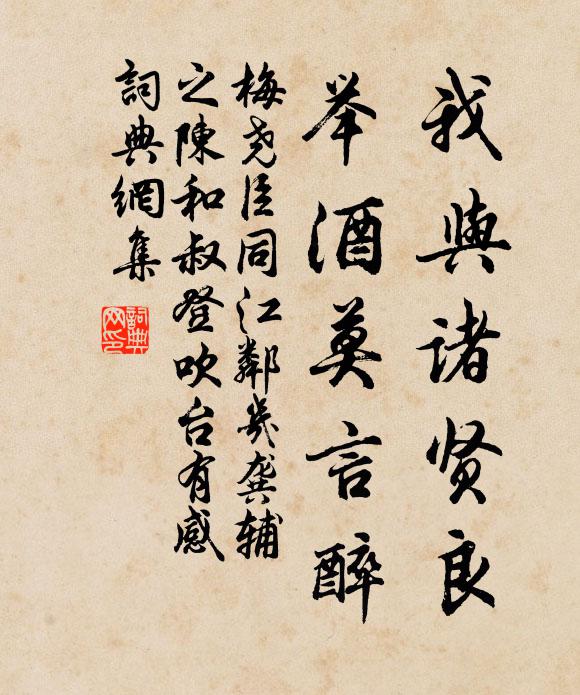 我與諸贤良
举酒莫言醉
梅尧臣同江鄰幾龚辅
之陳和叔登吹台有感
詞典網集
詞典网印